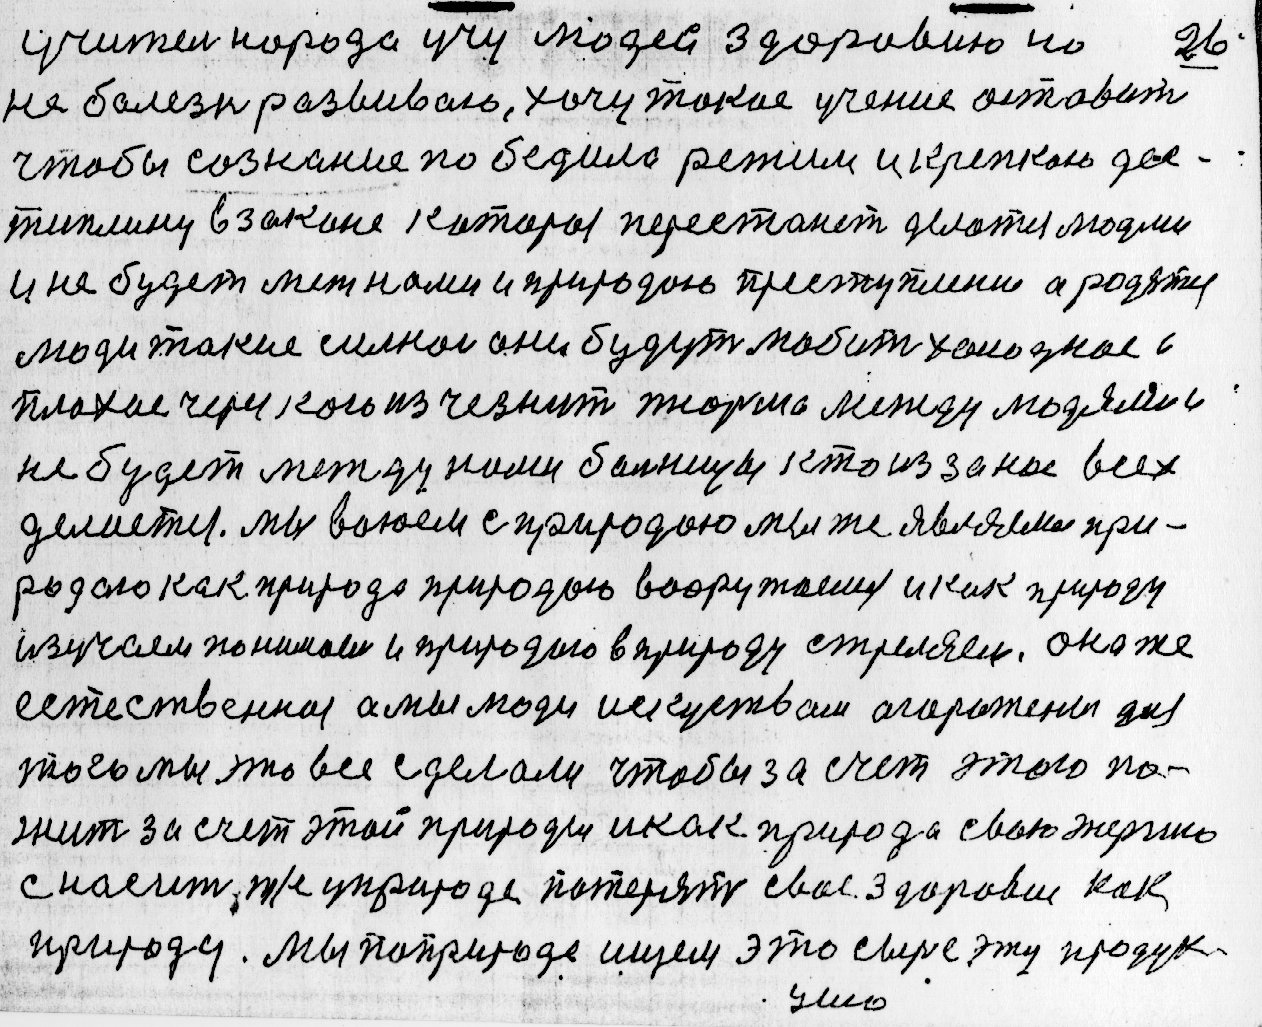 учител народа учу людей здоровию но 26
не болезн развиваю, хочу такое учение оставит
чтобы сознание победила режим и крепкою дес-
типлину в законе которы перестанет делатся людми
и не будет меж нами и природою преступлени а родятся
люди такие силнои они будут любит холодное и
плохое через кого из чезнит тюрма между людями и
не будет между нами болницы кто из за нас всех
делается. мы воюем с природою мы же являемы при-
родою как природа природою вооружаемы и как природу
изучаем понимаем и природою в природу стреляем. она же
естественная а мы люди исскуствам огорожены для
того мы это все сделали чтобы за счет этого по-
жит за счет этой природы и как природа свою энергию
снасчет же у природе потерят свое здоровие как
природы. мы по природе ищем это сыре эту продук-
цию